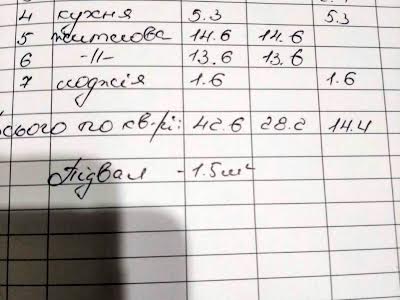 4 кухня 5.3 5.3
5 житлова 14.6 14.6
6 -//- 13.6 13.6
7 лоджія 1.6 1.6
всього по кв-рі: 42.6 28.2 14.4
Підвал - 1.5 м²